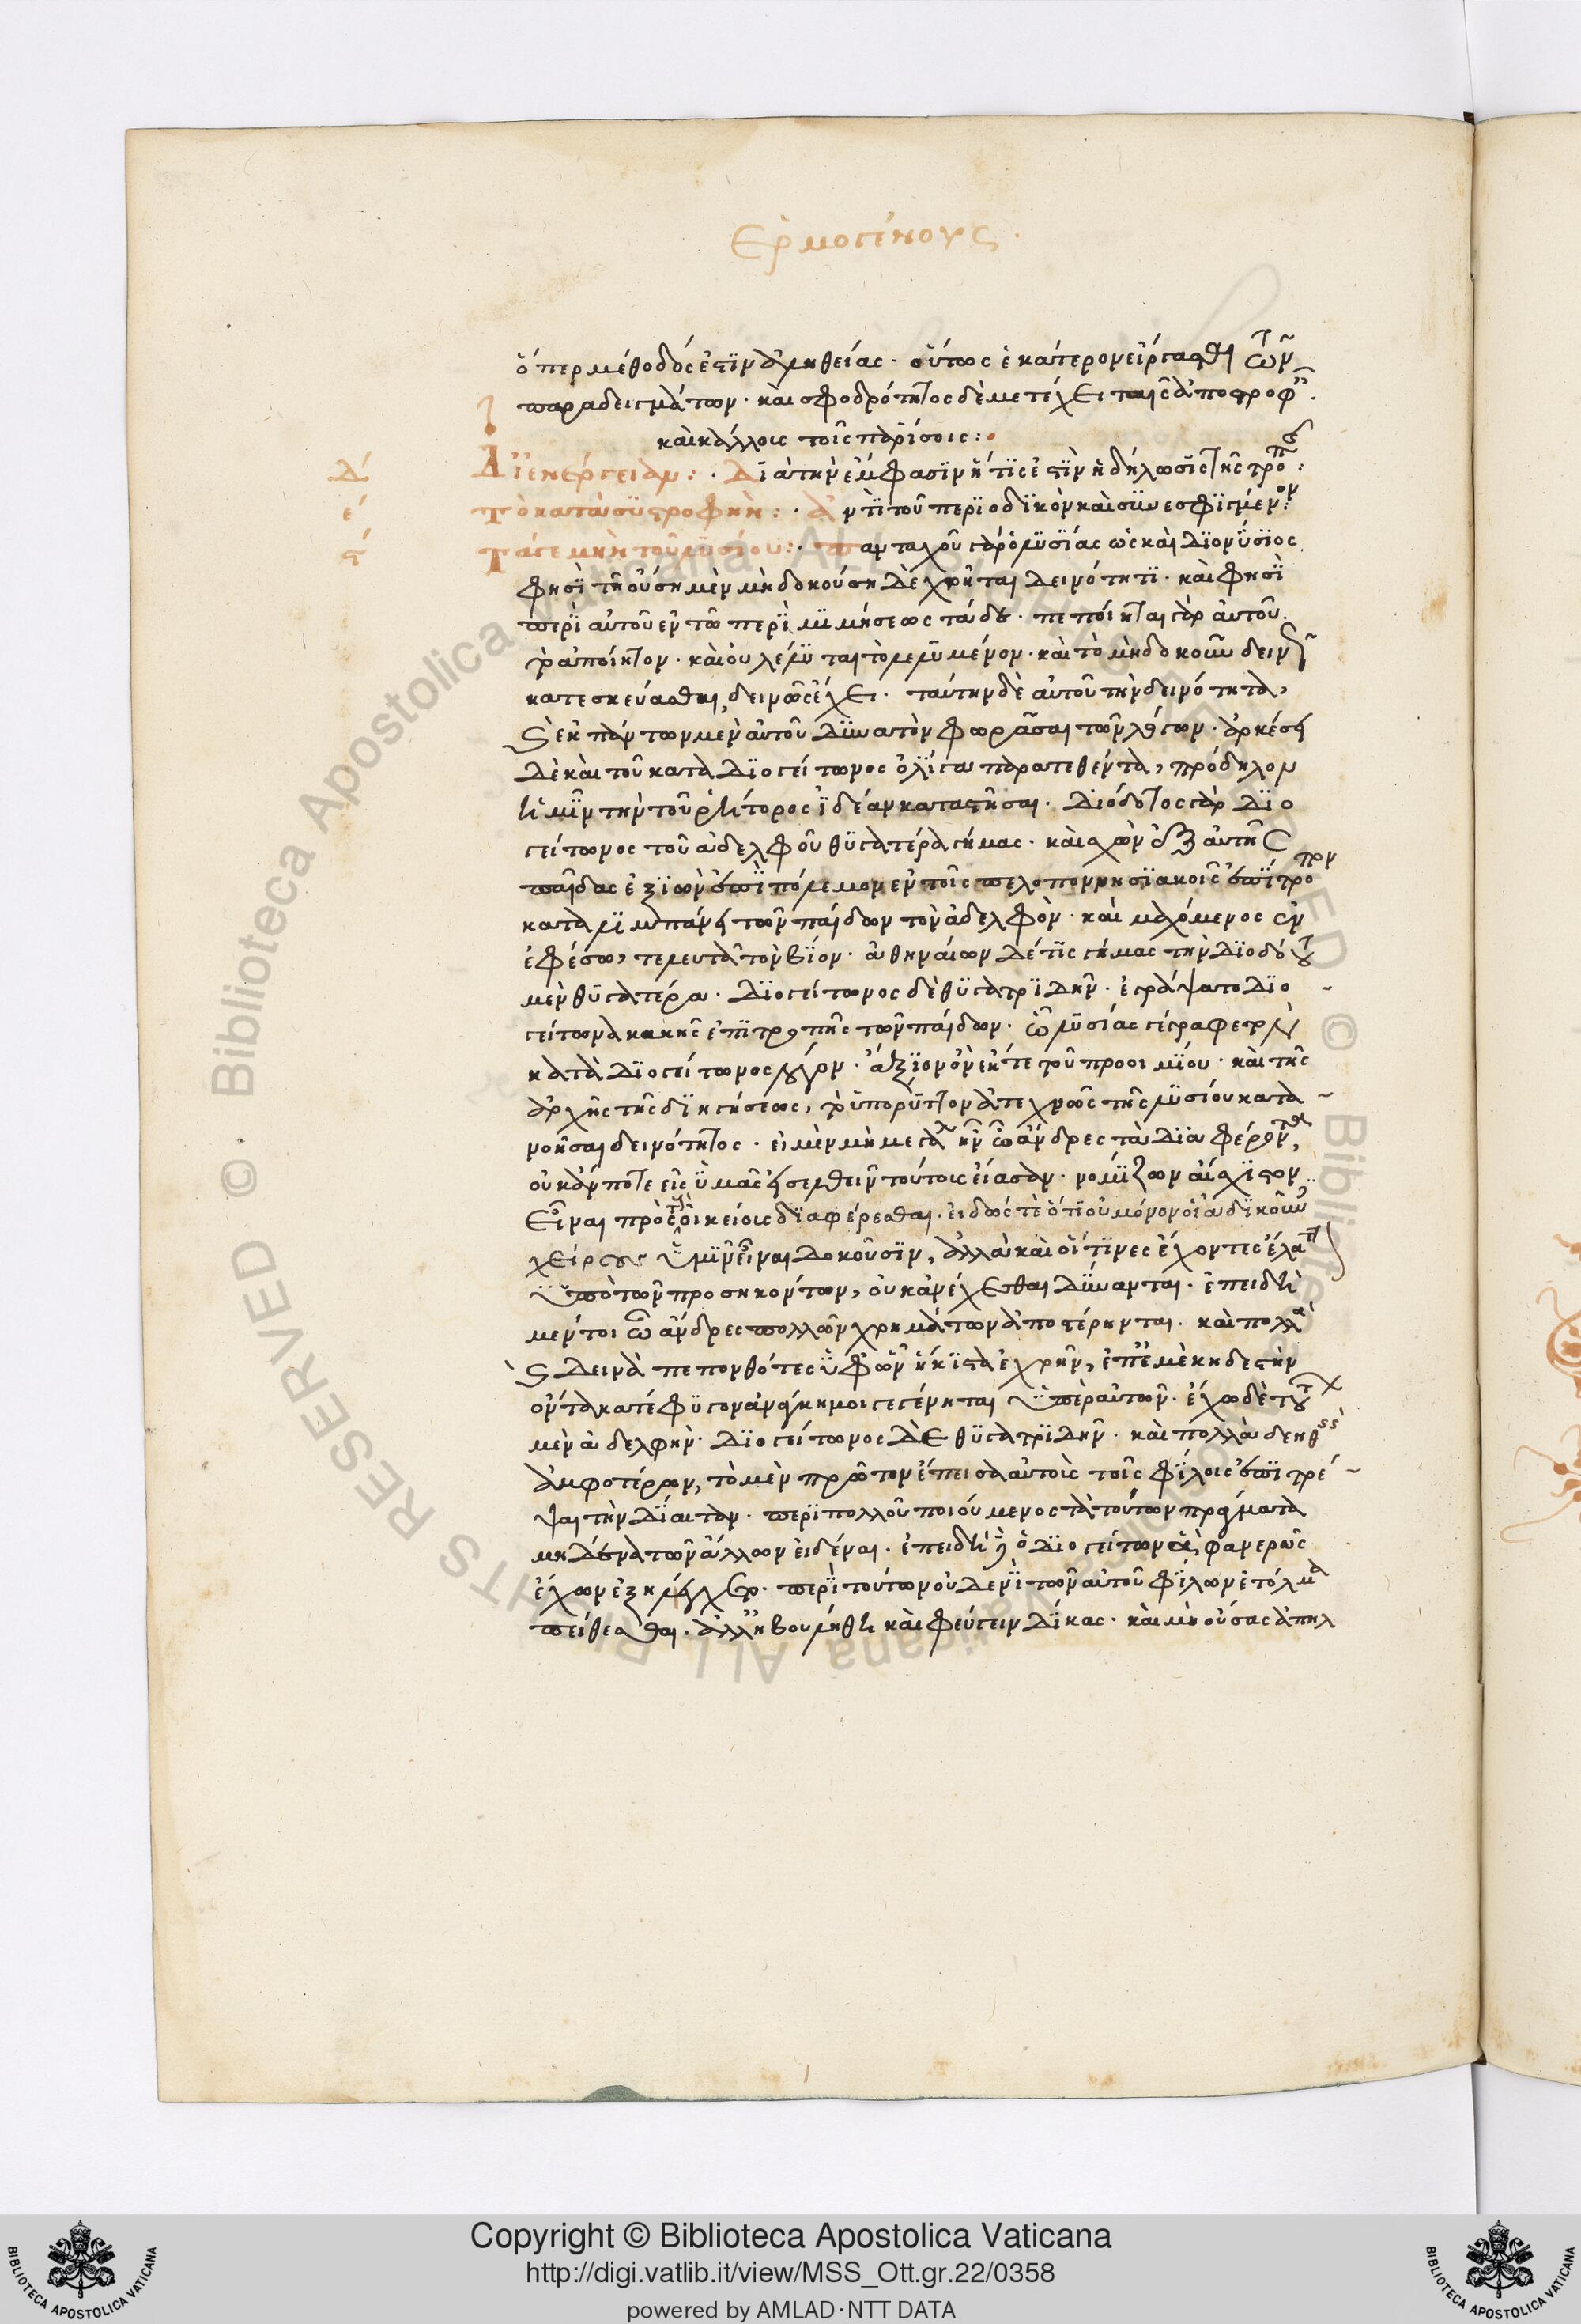 Ἑρμογένους.
ὅπερ μέθοδός ἐστιν ἀληθείας. οὕτως ἑκάτερον εἴργασθαι τῶν
παραδειγμάτων. καὶ σφοδρότητος δὲ μετέχει ταῖς ἀποστροφαῖς.
καὶ κάλλους τοῖς παρίσοις:
δ΄ Δι' ἐνέργειαν: . Διὰ τὴν ἔμφασιν ἥτις ἐστὶν ἡ δήλωσις τῆς τροπῆς:
ε΄ Τὸ κατὰ συστροφὴν: . ἀντὶ τοῦ περιοδικὸν καὶ συνεσφιγμένον:
ς΄ Τά γε μὴν τοῦ λυσίου: . πανταχοῦ γὰρ ὁ λυσίας ὡς καὶ Διονύσιος
φησὶ τῆ οὔση μὲν μὴ δοκούση δὲ χρῆται δεινότητι. καὶ φησὶ
περὶ αὐτοῦ ἐν τῶ περὶ μιμήσεως τάδε. πεποίηται γὰρ αὐτοῦ
τὸ ἀποίητον. καὶ οὐ λέλυται τὸ λελυμένον. καὶ τὸ μὴ δοκοῦν δεινῶς
κατεσκευάσθαι, δεινῶς ἔχει. ταύτην δὲ αὐτοῦ τὴν δεινότητα,
ἐκ πάντων μὲν αὐτοῦ δυνατὸν φωρᾶσαι τῶν λόγων. ἀρκέσει
δὲ καὶ τοῦ κατὰ Διογείτωνος ὀλίγα παρατεθέντα, πρόδηλον
ἡμῖν τὴν τοῦ ῥήτορος ἰδέαν καταστῆσαι. Διόδοτος γὰρ Διο
γείτωνος τοῦ ἀδελφοῦ θυγατέρα γήμας. καὶ σχὼν ἐξ αὐτῆς
παῖδας ἐξιὼν ἐπὶ πόλεμον ἐν τοῖς πελοποννησιακοῖς ἐπίτροπον
καταλιμπάνει τῶν παίδων τὸν ἀδελφὸν. καὶ μαχόμενος ἐν
ἐφέσω, τελευτᾶ τὸν βίον. ἀθηναίων δέ τις γήμας τὴν Διοδότου
μὲν θυγατέρα. Διογείτωνος δὲ θυγατριδῆν. ἐγράψατο Διο
γείτωνα κακῆς ἐπιτροπῆς τῶν παίδων. ὧ λυσίας γέγραφε τὸν
κατὰ Διογείτωνος λόγον. ἄξιον οὖν ἔκ τε τοῦ προοιμίου. καὶ τῆς
ἀρχῆς τῆς διηγήσεως, τὸ ὑπορύττον ἀτεχνῶς τῆς λυσίου κατα
νοῆσαι δεινότητος. εἰ μὲν μὴ μεγάλα ἦν ὦ ἄνδρες τὰ διαφέροντα,
οὐκ ἄν ποτε εἰς ὑμᾶς εἰσελθεῖν τούτοις εἴασαν. νομίζων αἴσχιστον
εἶναι πρὸς τοὺς οἰκείοις διαφέρεσθαι. εἰδώς τε ὅτι οὐ μόνον οἱ ἀδικοῦντες
χείρους ὑμῖν εἶναι δοκοῦσιν, ἀλλὰ καὶ οἵτινες ἔχοντες ἔλαττον
ὑπὸ τῶν προσηκόντων, οὐκ ἀνέχεσθαι δύνανται. ἐπειδὴ
μέντοι ὦ ἄνδρες πολλῶν χρημάτων ἀποστέρηνται. καὶ πολλὰ
δεινὰ πεπονθότες ὑφ' ὧν ἥκιστα ἐχρῆν, ἐπ' ἐμὲ κηδεστὴν
ὄντα κατέφυγον ἀνάγκη μοι γεγένηται ὑπὲρ αὐτῶν. ἔχω δὲ τούτων
μὲν ἀδελφὴν. Διογείτωνος δὲ θυγατριδῆν. καὶ πολλὰ δεηθεὶς
ἀμφοτέρων, τὸ μὲν πρῶτον ἔπεισα αὐτοὺς τοῖς φίλοις ἐπιτρέ
ψαι τὴν δίαιταν. περὶ πολλοῦ ποιούμενος τὰ τούτων πράγματα
μηδένα τῶν ἄλλων εἰδέναι. ἐπειδὴ δὲ ὁ Διογείτων ἃ φανερῶς
ἔχων ἐξηλέγχετο. περὶ τούτων οὐδενὶ τῶν αὐτοῦ φίλων ἐτόλμα
πείθεσθαι. ἀλλ' ἠβουλήθη καὶ φεύγειν δίκας. καὶ μὴ οὔσας ἀπηλ
Copyright © Biblioteca Apostolica Vaticana
http://digi.vatlib.it/view/MSS_Ott.gr.22/0358
powered by AMLAD·NTT DATA